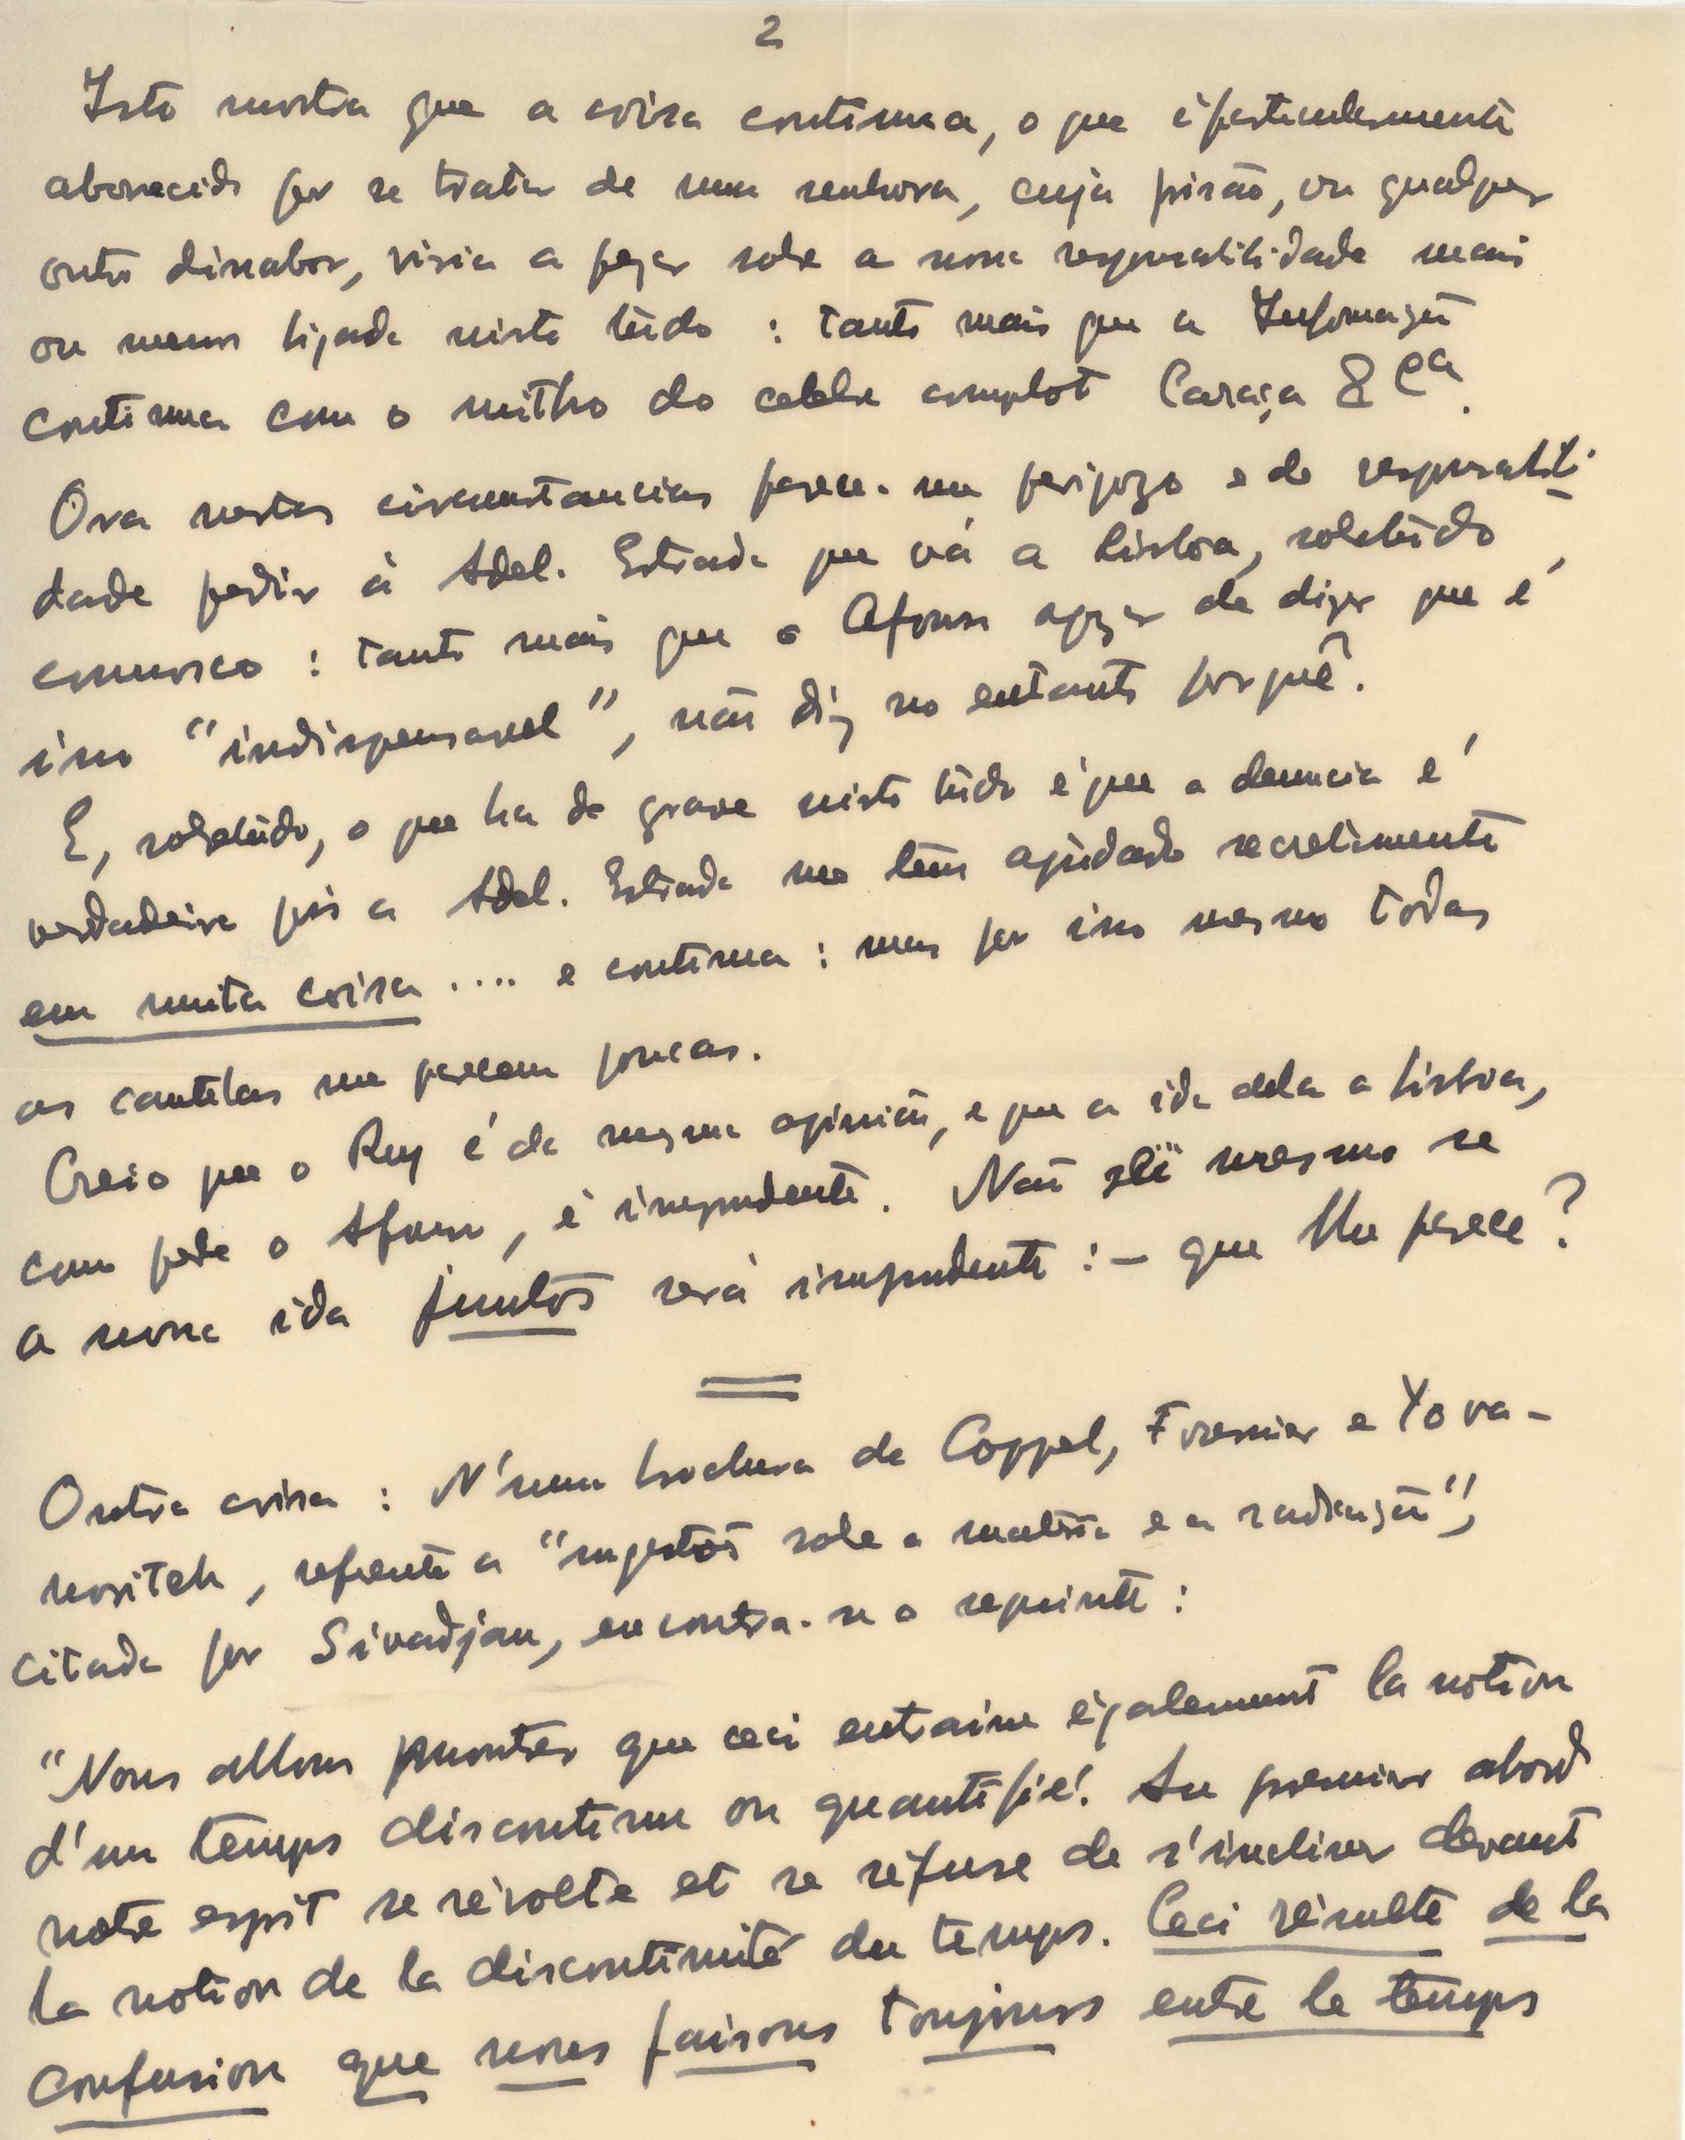 2
Isto mostra que a coisa continua, o que é particularmente
aborrecido por se tratar de uma senhora, cuja prisão, ou qualquer
outro dissabor, viria a pezar sobre a nossa responsabilidade mais
ou menos ligada nisto túdo : tanto mais que a Informação
continua com o mitho do celebre complot Caraça & Cª.
Ora nestas circunstancias parece-me perigozo e de responsabili-
dade pedir á Adel. Estrada que vá a Lisboa, sobretúdo
comnosco : tanto mais que o Afonso apezar de dizer que é
isso "indispensavel", não diz no entanto porquê.
E, sobretúdo, o que ha de grave nisto túdo é que a denuncia é
verdadeira pois a Adel. Estrada nos tem ajudado secretamente
em muita coisa .... e continua : mas por isso mesmo todas
as cautelas me parecem poucas.
Creio que o Ruy é da mesma opinião, e que a ida dela a Lisboa,
como pede o Afonso, é imprudente. Não sei mesmo se
a nossa ida juntos será imprudente : – que lhe parece?
Outra coisa : N'uma brochura de Coppel, Fournier e Yova-
novitch, referente a "sugestões sobre a matéria e a radiação",
citada por Sivadjan, encontra-se o seguinte :
"Nous allons montrer que ceci entraine également la notion
d'un temps discontinu ou quantifié. Au premier abord
notre esprit se révolte et se réfuse de s'incliner devant
la notion de la discontinuité du temps. Ceci résulte de la
confusion que nous faisons toujours entre le temps